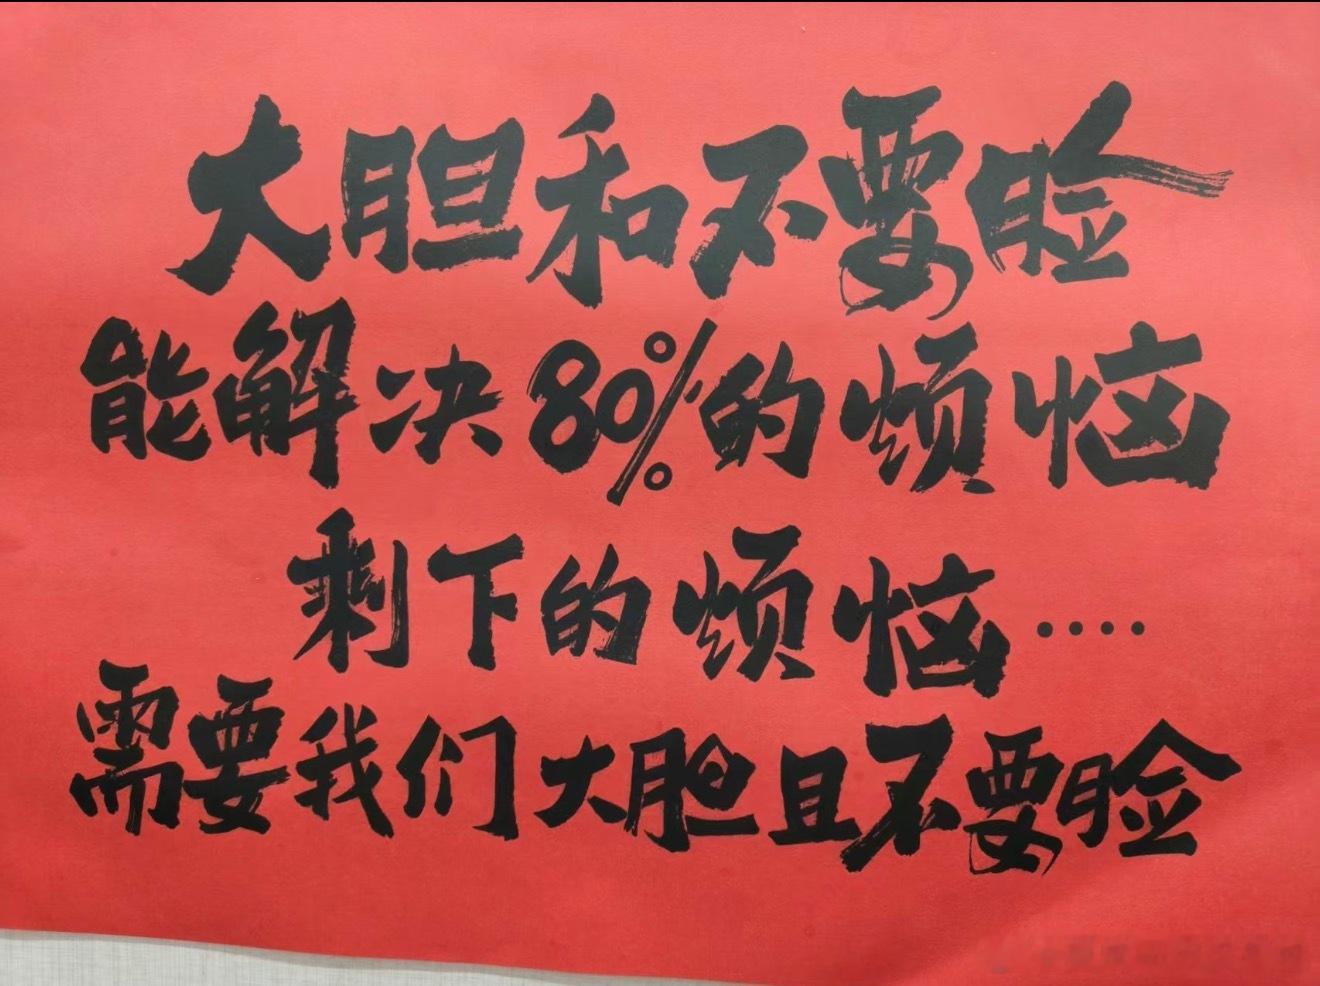 大胆和不要脸
能解决80%的烦恼
剩下的烦恼····
需要我们大胆且不要脸